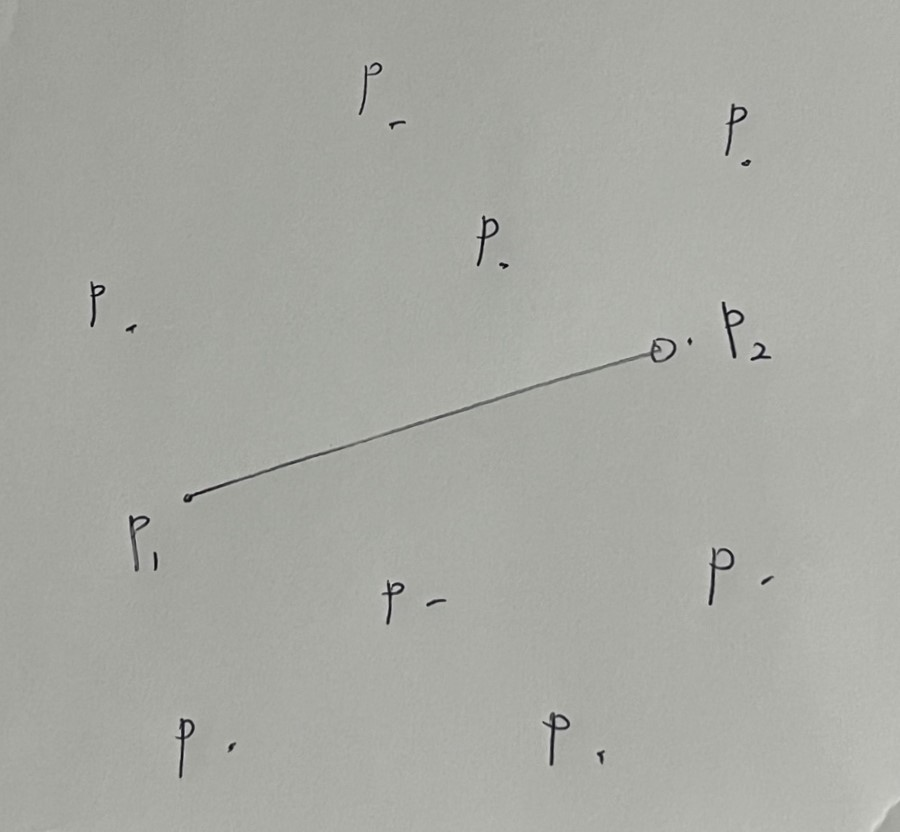 P
P
P
P
P₂
P₁
P
P
P
P